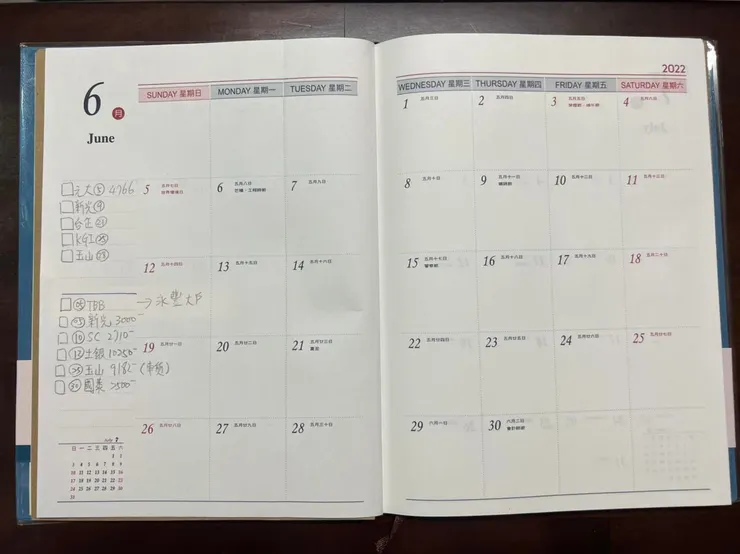 2022
6月
June
SUNDAY 星期日 MONDAY 星期一 TUESDAY 星期二 WEDNESDAY 星期三 THURSDAY 星期四 FRIDAY 星期五 SATURDAY 星期六
1 五月三日 2 五月四日 3 五月五日 4 五月六日
5 五月七日 6 五月八日 7 五月九日 8 五月十日 9 五月十一日 10 五月十二日 11 五月十三日
12 五月十四日 13 五月十五日 14 五月十六日 15 五月十七日 16 五月十八日 17 五月十九日 18 五月二十日
警察節
19 五月廿一日 20 五月廿二日 21 五月廿三日 22 五月廿四日 23 五月廿五日 24 五月廿六日 25 五月廿七日
夏至
26 五月廿八日 27 五月廿九日 28 五月三十日 29 六月一日 30 六月二日
會計師節
元大⑤ 4766
新光
台企
KGI
玉山
TBB → 永豐大戶
新光 3000-
⑩ SC 2710-
土銀 10250-
玉山 9182- (車貸)
國泰 2500-
July 7
日 一 二 三 四 五 六
1 2
3 4 5 6 7 8 9
10 11 12 13 14 15 16
17 18 19 20 21 22 23
24 25 26 27 28 29 30
31